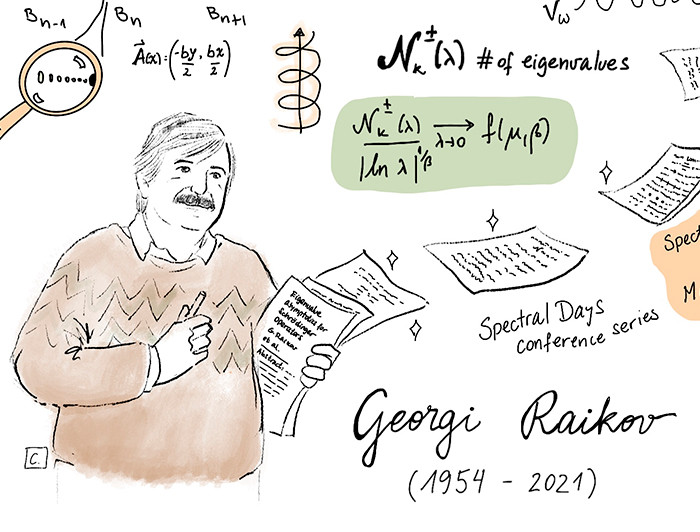 B_{n-1} B_n B_{n+1}
V_ω
A⃗(x)=(-by/2, bx/2)
𝒩_κ^±(λ) # of eigenvalues
𝒩_κ^±(λ) / |ln λ|^{1/β} →_{λ→0} f(μ,β)
Spect
M
Eigenvalue
asymptotics for
Schrödinger
Operators
G. Raikov
et al.
Abstract:
Spectral Days
conference series
Georgi Raikov
(1954 - 2021)
C.